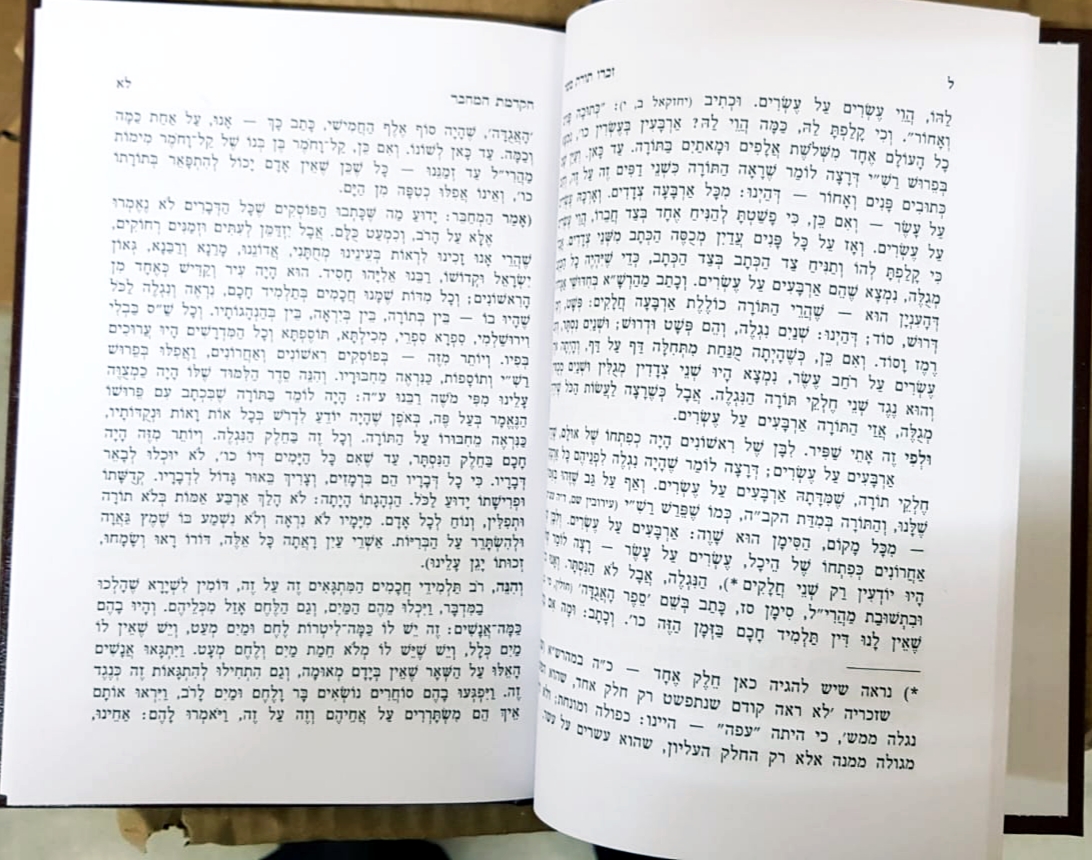 ל
זכרו תורת משה
לַהּוּ, הֲוֵי עֶשְׂרִים עַל עֶשְׂרִים. וּכְתִיב (יחזקאל ב, י): "כְּתוּבָה פָּנִים
וְאָחוֹר". וְכִי קָלְפַתְּ לַהּ, כַּמָּה הֲוֵי לַהּ? אַרְבְּעִין בְּעֶשְׂרִין כו׳,
כָּל הָעוֹלָם אֶחָד מִשְּׁלֹשֶׁת אֲלָפִים וּמָאתַיִם בַּתּוֹרָה. עַד כָּאן.
בְּפֵרוּשׁ רַשִׁ״י דְּרָצָה לוֹמַר שֶׁרָאָה הַתּוֹרָה כִּשְׁנֵי דַפִּים זֶה עַל זֶה,
כְּתוּבִים פָּנִים וְאָחוֹר — דְּהַיְנוּ: מִכָּל אַרְבָּעָה צְדָדִים.
עַל עֶשֶׂר — וְאִם כֵּן, כִּי פָּשַׁטְתָּ לְהַנִּיחַ אֶחָד בְּצַד חֲבֵרוֹ, הֲוֵי
עַל עֶשְׂרִים. וְאָז עַל כָּל פָּנִים עֲדַיִן מְכֻסֶּה הַכְּתָב מִשְּׁנֵי צְדָדִים.
כִּי קָלְפַתְּ לְהוֹ וְתַנִּיחַ צַד הַכְּתָב בְּצַד הַכְּתָב, כְּדֵי שֶׁיִּהְיֶה כָּל
מְגֻלֶּה, נִמְצָא שֶׁהֵם אַרְבָּעִים עַל עֶשְׂרִים. וְכָתַב מַהַרְשָׁ״א בְּחִדּוּשֵׁי
דְּהָעִנְיָן הוּא — שֶׁהֲרֵי הַתּוֹרָה כּוֹלֶלֶת אַרְבָּעָה חֲלָקִים: פְּשָׁט,
דְּרוּשׁ, סוֹד; דְּהַיְנוּ: שְׁנַיִם נִגְלֶה, וְהֵם פְּשָׁט וּדְרוּשׁ; וּשְׁנַיִם נִסְתָּר,
רֶמֶז וְסוֹד. וְאִם כֵּן, כְּשֶׁהָיְתָה מֻנַּחַת מִתְּחִלָּה דַּף עַל דַּף, וְהָיְתָה
עֶשְׂרִים עַל רֹחַב עֶשֶׂר, נִמְצָא הָיוּ שְׁנֵי צְדָדִין מְגֻלִּין וּשְׁנַיִם
וְהוּא נֶגֶד שְׁנֵי חֶלְקֵי תוֹרָה הַנִּגְלָה. אֲבָל כְּשֶׁרָצָה לַעֲשׂוֹת הַכֹּל
מְגֻלֶּה, אֲזַי הַתּוֹרָה אַרְבָּעִים עַל עֶשְׂרִים.
וּלְפִי זֶה אָתֵי שַׁפִּיר. לִבָּן שֶׁל רִאשׁוֹנִים הָיָה כְּפִתְחוֹ שֶׁל אוּלָם,
אַרְבָּעִים עַל עֶשְׂרִים; דְּרָצָה לוֹמַר שֶׁהָיָה נִגְלֶה לִפְנֵיהֶם כָּל
חֶלְקֵי תוֹרָה, שֶׁמִּדָּתָהּ אַרְבָּעִים עַל עֶשְׂרִים. וְאַף עַל גַּב שֶׁזֶּהוּ
שֶׁלָּנוּ, וְהַתּוֹרָה בְּמִדַּת הקב״ה, כְּמוֹ שֶׁפֵּרַשׁ רַשִׁ״י (עירובין שם,
— מִכָּל מָקוֹם, הַסִּימָן הוּא שָׁוֶה: אַרְבָּעִים עַל עֶשְׂרִים.
אַחֲרוֹנִים כְּפִתְחוֹ שֶׁל הֵיכָל, עֶשְׂרִים עַל עֶשֶׂר — רָצָה לוֹמַר
הָיוּ יוֹדְעִין רַק שְׁנֵי חֲלָקִים *), הַנִּגְלֶה, אֲבָל לֹא הַנִּסְתָּר.
וּבִתְשׁוּבַת מַהֲרִי״ל, סִימָן סז, כָּתַב בְּשֵׁם ׳סֵפֶר הָאֲגֻדָּה׳
שֶׁאֵין לָנוּ דִּין תַּלְמִיד חָכָם בַּזְּמַן הַזֶּה כו׳. וְכָתַב: וּמָה אִם
*) נראה שיש להגיה כאן חֵלֶק אֶחָד — כ״ה במהרש״א
שזכריה ׳לא ראה קודם שנתפשט רק חלק אחד, שהוא
נגלה ממש׳, כי היתה ״עפה״ — היינו: כפולה ומונחת;
מגולה ממנה אלא רק החלק העליון, שהוא עשרים על עשר.
הקדמת המחבר
לא
׳הָאֲגֻדָּה׳, שֶׁהָיָה סוֹף אֶלֶף הַחֲמִישִׁי, כָּתַב כָּךְ — אָנוּ, עַל אַחַת כַּמָּה
וְכַמָּה. עַד כָּאן לְשׁוֹנוֹ. וְאִם כֵּן, קַל־וָחֹמֶר בֶּן בְּנוֹ שֶׁל קַל־וָחֹמֶר מִימוֹת
מַהֲרִי״ל עַד זְמַנֵּנוּ — כָּל שֶׁכֵּן שֶׁאֵין אָדָם יָכוֹל לְהִתְפָּאֵר בְּתוֹרָתוֹ
כו׳, וְאֵינוֹ אֲפִלּוּ כְּטִפָּה מִן הַיָּם.
(אָמַר הַמְחַבֵּר: יָדוּעַ מַה שֶּׁכָּתְבוּ הַפּוֹסְקִים שֶׁכָּל הַדְּבָרִים לֹא נֶאֶמְרוּ
אֶלָּא עַל הָרֹב, וְכִמְעַט כֻּלָּם. אֲבָל יִזְדַּמֵּן לְעִתִּים וּזְמַנִּים רְחוֹקִים,
שֶׁהֲרֵי אָנוּ זָכִינוּ לִרְאוֹת בְּעֵינֵינוּ מְחֻתָּנִי, אֲדוֹנֵנוּ, מָרָנָא וְרַבָּנָא, גְּאוֹן
יִשְׂרָאֵל וּקְדוֹשׁוֹ, רַבֵּנוּ אֵלִיָּהוּ חָסִיד. הוּא הָיָה עִיר וְקַדִּישׁ כְּאֶחָד מִן
הָרִאשׁוֹנִים; וְכָל מִדּוֹת שֶׁמָּנוּ חֲכָמִים בְּתַלְמִיד חָכָם, נִרְאֶה וְנִגְלֶה לַכֹּל
שֶׁהָיוּ בוֹ — בֵּין בְּתוֹרָה, בֵּין בְּיִרְאָה, בֵּין בְּהַנְהָגוֹתָיו. וְכָל שַׁ״ס בַּבְלִי
וִירוּשַׁלְמִי, סִפְרָא סִפְרֵי, מְכִילְתָּא, תּוֹסֶפְתָּא וְכָל הַמִּדְרָשִׁים הָיוּ עֲרוּכִים
בְּפִיו. וְיוֹתֵר מִזֶּה — בְּפוֹסְקִים רִאשׁוֹנִים וְאַחֲרוֹנִים, וַאֲפִלּוּ בְּפֵרוּשׁ
רַשִׁ״י וְתוֹסָפוֹת, כַּנִּרְאֶה מֵחִבּוּרָיו. וְהִנֵּה סֵדֶר הַלִּמּוּד שֶׁלּוֹ הָיָה כַּמְצֻוֶּה
עָלֵינוּ מִפִּי מֹשֶׁה רַבֵּנוּ ע״ה: הָיָה לוֹמֵד בַּתּוֹרָה שֶׁבִּכְתָב עִם פֵּרוּשׁוֹ
הַנֶּאֱמָר בְּעַל פֶּה, בְּאֹפֶן שֶׁהָיָה יוֹדֵעַ לִדְרֹשׁ בְּכָל אוֹת וָאוֹת וּנְקֻדּוֹתֶיהָ,
כַּנִּרְאֶה מֵחִבּוּרוֹ עַל הַתּוֹרָה. וְכָל זֶה בְּחֵלֶק הַנִּגְלֶה. וְיוֹתֵר מִזֶּה הָיָה
חָכָם בַּחֵלֶק הַנִּסְתָּר, עַד שֶׁאִם כָּל הַיַּמִּים דְּיוֹ כו׳, לֹא יוּכְלוּ לְבָאֵר
דְּבָרָיו. כִּי כָל דְּבָרָיו הֵם בִּרְמָזִים, וְצָרִיךְ בֵּאוּר גָּדוֹל לִדְבָרָיו. קְדֻשָּׁתוֹ
וּפְרִישָׁתוֹ יָדוּעַ לַכֹּל. הַנְהָגָתוֹ הָיְתָה: לֹא הָלַךְ אַרְבַּע אַמּוֹת בְּלֹא תוֹרָה
וּתְפִלִּין, וְנוֹחַ לְכָל אָדָם. מִיָּמָיו לֹא נִרְאָה וְלֹא נִשְׁמַע בּוֹ שֶׁמֶץ גַּאֲוָה
וּלְהִשְׂתָּרֵר עַל הַבְּרִיּוֹת. אַשְׁרֵי עַיִן רָאֲתָה כָּל אֵלֶּה, דּוֹרוֹ רָאוּ וְשָׂמָחוּ,
זְכוּתוֹ יָגֵן עָלֵינוּ).
וְהִנֵּה, רֹב תַּלְמִידֵי חֲכָמִים הַמִּתְגָּאִים זֶה עַל זֶה, דּוֹמִין לִשְׁיָרָא שֶׁהָלְכוּ
בַּמִּדְבָּר, וַיִּכְלוּ מֵהֶם הַמַּיִם, וְגַם הַלֶּחֶם אָזַל מִכְּלֵיהֶם. וְהָיוּ בָהֶם
כַּמָּה־אֲנָשִׁים: זֶה יֵשׁ לוֹ כַּמָּה־לִיטְרוֹת לֶחֶם וּמַיִם מְעַט, וְיֵשׁ שֶׁאֵין לוֹ
מַיִם כְּלָל, וְיֵשׁ שֶׁיֵּשׁ לוֹ מְלֹא חֵמַת מַיִם וְלֶחֶם מְעָט. וַיִּתְגָּאוּ אֲנָשִׁים
הָאֵלּוּ עַל הַשְּׁאָר שֶׁאֵין בְּיָדָם מְאוּמָה, וְגַם הִתְחִילוּ לְהִתְגָּאוֹת זֶה כְּנֶגֶד
זֶה. וַיִּפְגְּעוּ בָהֶם סוֹחֲרִים נוֹשְׂאִים בַּר וָלֶחֶם וּמַיִם לָרֹב, וַיִּרְאוּ אוֹתָם
אֵיךְ הֵם מִשְׂתָּרְרִים עַל אֲחֵיהֶם וְזֶה עַל זֶה, וַיֹּאמְרוּ לָהֶם: אַחֵינוּ,